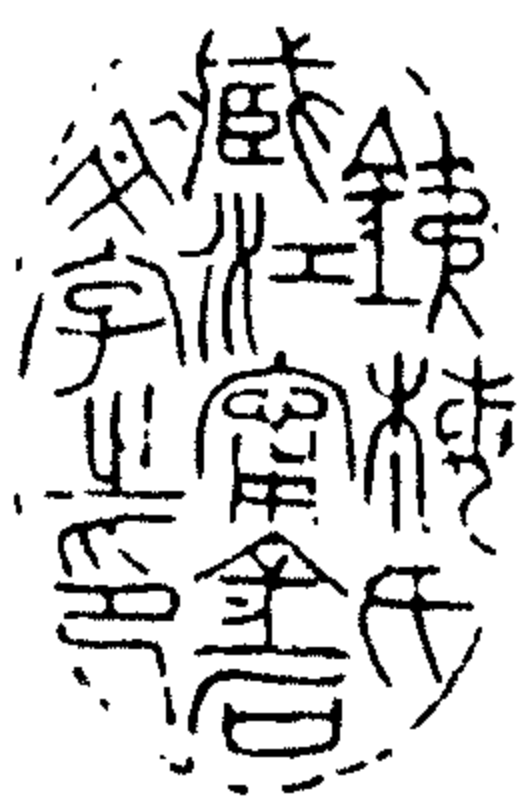 氏
藏江甯金石
文字之印